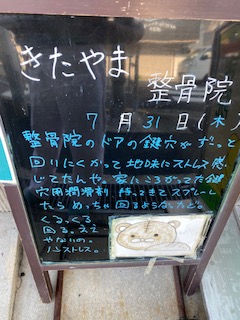 きたやま
整骨院
7月31日(木)
整骨院のドアの鍵穴がずっと
回りにくかって地味にストレス感
じてたんや。家にころがってた鍵
穴用潤滑剤 持ってきてスプレーし
たら めっちゃ 回るようなったで。
くる、くる
回る。ええ
やないの。
ノンストレス。